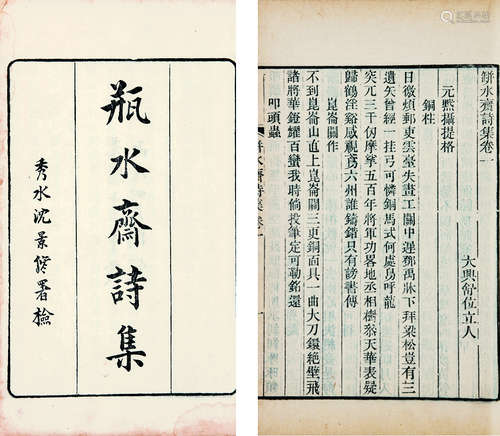 瓶水齋詩集
秀水沈景修署檢
缾水齋詩集卷一
大興舒位立人
元黓攝提格
銅柱
日徵煩 東雲臺失畫工關中遲鄧禹牀下拜梁松豈有三
遺矢曾經一挂弓可憐銅馬式何處鳥呼龍
突兀三千仞摩挲五百年將軍功畧地丞相樹 天華表疑
歸鶴淫谿感視鳶六州誰鑄錯只有謗書傳
崑崙關作
不到崑崙山直上崑崙關三更銅面具一曲大刀鐶絕壁飛
諸將華鐙耀百蠻我時倘投筆定可勒銘還
叩頭蟲
缾水齋詩集 卷一